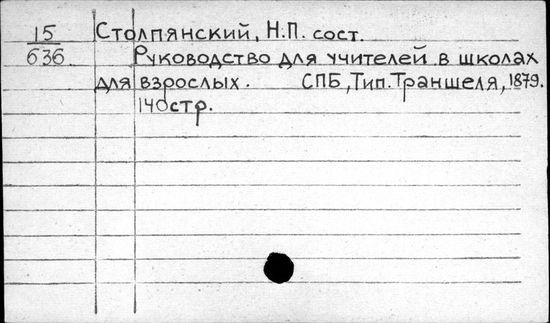 15 Столпянский, Н.П. сост.
636 Руководство для учителей в школах
для взрослых. СПБ, Тип. Траншеля, 1879.
140 стр.